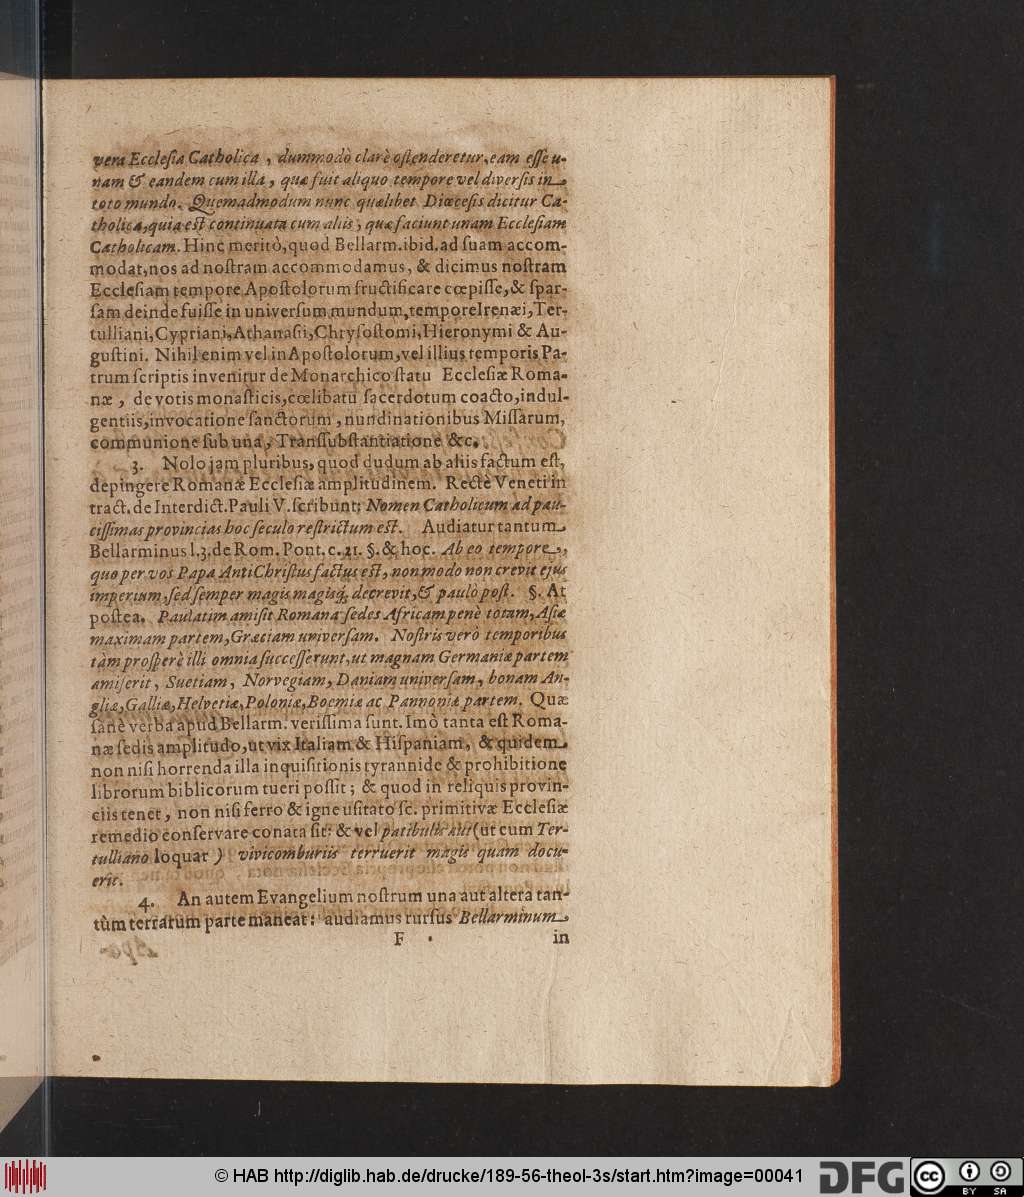 vera Ecclesia Catholica, dummodò clarè ostenderetur, eam esse u-
nam & eandem cum illa, quæ fuit aliquo tempore vel diversis in
toto mundo. Quemadmodum nunc quælibet Diœcesis dicitur Ca-
tholica, quia est continuata cum aliis, quæ faciunt unam Ecclesiam
Catholicam. Hinc meritò, quod Bellarm. ibid. ad suam accom-
modat, nos ad nostram accommodamus, & dicimus nostram
Ecclesiam tempore Apostolorum fructificare cœpisse, & spar-
sam deinde fuisse in universum mundum, tempore Irenæi, Ter-
tulliani, Cypriani, Athanasii, Chrysostomi, Hieronymi & Au-
gustini. Nihil enim vel in Apostolorum, vel illius temporis Pa-
trum scriptis invenitur de Monarchico statu Ecclesiæ Roma-
næ, de votis monasticis, cœlibatu sacerdotum coacto, indul-
gentiis, invocatione sanctorum, nundinationibus Missarum,
communione sub una, Transsubstantiatione &c.
3. Nolo jam pluribus, quod dudum ab aliis factum est,
depingere Romanæ Ecclesiæ amplitudinem. Rectè Veneti in
tract. de Interdict. Pauli V. scribunt: Nomen Catholicum ad pau-
cissimas provincias hoc seculo restrictum est. Audiatur tantum
Bellarminus l. 3. de Rom. Pont. c. 21. §. & hoc. Ab eo tempore,
quo per vos Papa AntiChristus factus est, non modo non crevit ejus
imperium, sed semper magis magisq; decrevit, & paulò post. §. At
postea. Paulatim amisit Romana sedes Africam penè totam, Asiæ
maximam partem, Græciam universam. Nostris verò temporibus
tàm prosperè illi omnia successerunt, ut magnam Germaniæ partem
amiserit, Suetiam, Norvegiam, Daniam universam, bonam An-
gliæ, Galliæ, Helvetiæ, Poloniæ, Boemiæ ac Pannoniæ partem. Quæ
sanè verba apud Bellarm. verissima sunt. Imò tanta est Roma-
næ sedis amplitudo, ut vix Italiam & Hispaniam, & quidem
non nisi horrenda illa inquisitionis tyrannide & prohibitione
librorum biblicorum tueri possit; & quod in reliquis provin-
ciis tenet, non nisi ferro & igne usitato sc. primitivæ Ecclesiæ
remedio conservare conata sit: & vel patibulis aut (ut cum Ter-
tulliano loquar) vivicomburiis terruerit magis quam docu-
erit.
4. An autem Evangelium nostrum una aut altera tan-
tùm terrarum parte maneat: audiamus rursus Bellarminum
F in
© HAB http://diglib.hab.de/drucke/189-56-theol-3s/start.htm?image=00041
DFG
cc BY SA